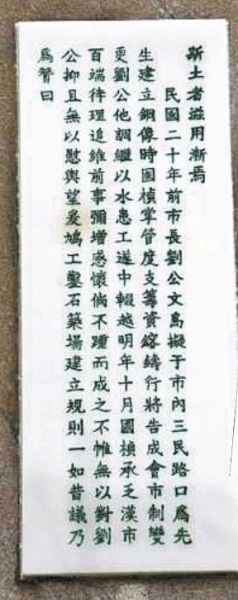 斯土者滋用漸焉
民國二十年前市長劉公文島擬于市內三民路口爲先
生建立銅像時國楨掌管度支籌資鎔鑄行將告成會市制變
更劉公他調繼以水患工遂中輟越明年十月國楨承乏漢市
百端待理追維前事彌增感懷倘不踵而成之不惟無以對劉
公抑且無以慰輿望爰鳩工鑿石築場建立規則一如昔議乃
爲贊曰